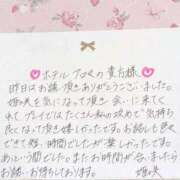 ホテル アゴくの貴方様
昨日はお誘い頂きありがとうございました。
婚咲を気になって頂き会いに来てく
れて、プレイではたくさん私の攻めで気持ち
良くなって頂き嬉しかったです。お話しも良く
できて 時間でしたが楽しかったです。
あという間でした。またお時間が合いましたら
お誘いお待ちしております。